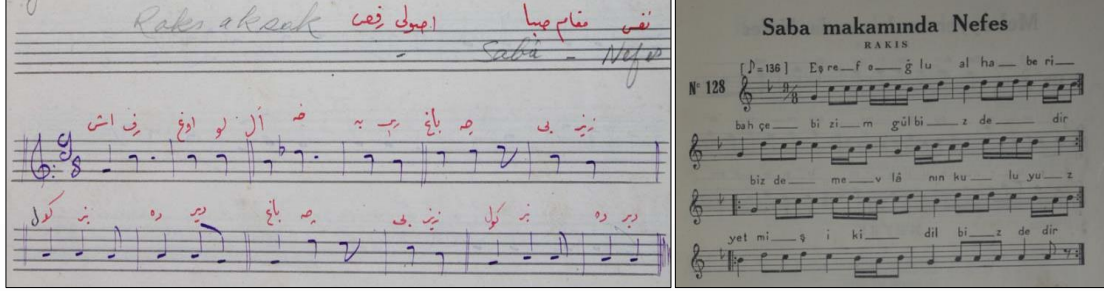 Raks aksak اصولی رقص مقام صبا نفس
Saba - Nefes
اش رف اوغ لو اَل خه به باغ چه بی
كول بز ده دیر باغ چه بی كول بز ده دیر
Saba makamında Nefes
RAKIS
[♪=136] Eşre__f o__ğ lu al ha__ be ri__
N° 128
9/8
bah çe__ bi zi__m gül bi__z de__ dir
biz de__ me__v lâ nın ku__ lu yu__z
yet mi__ş i ki__ dil bi__z de dir